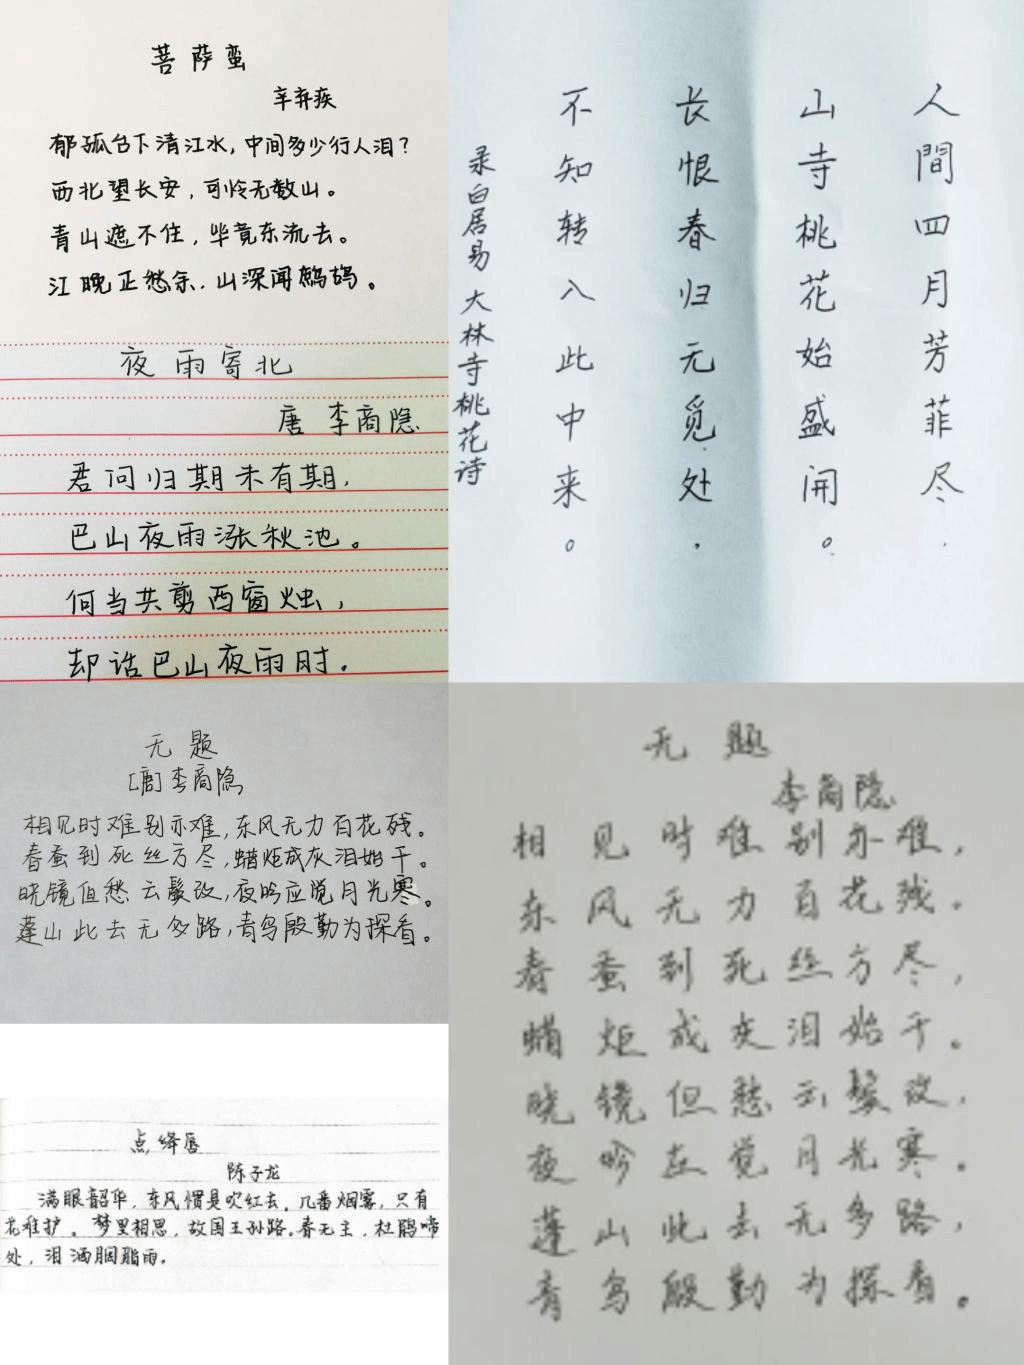 菩萨蛮
辛弃疾
郁孤台下清江水,中间多少行人泪?
西北望长安,可怜无数山。
青山遮不住,毕竟东流去。
江晚正愁余,山深闻鹧鸪。
夜雨寄北
唐 李商隐
君问归期未有期,
巴山夜雨涨秋池。
何当共剪西窗烛,
却话巴山夜雨时。
人間四月芳菲尽,
山寺桃花始盛開。
长恨春归无觅处,
不知转入此中来。
录白居易 大林寺桃花诗
无题
[唐]李商隐
相见时难别亦难,东风无力百花残。
春蚕到死丝方尽,蜡炬成灰泪始干。
晓镜但愁云鬓改,夜吟应觉月光寒。
蓬山此去无多路,青鸟殷勤为探看。
无题
李商隐
相见时难别亦难,
东风无力百花残。
春蚕到死丝方尽,
蜡炬成灰泪始干。
晓镜但愁云鬓改,
夜吟应觉月光寒。
蓬山此去无多路,
青鸟殷勤为探看。
点绛唇
陈子龙
满眼韶华,东风惯是吹红去。几番烟雾,只有
花难护。梦里相思,故国王孙路。春无主,杜鹃啼
处,泪洒胭脂雨。